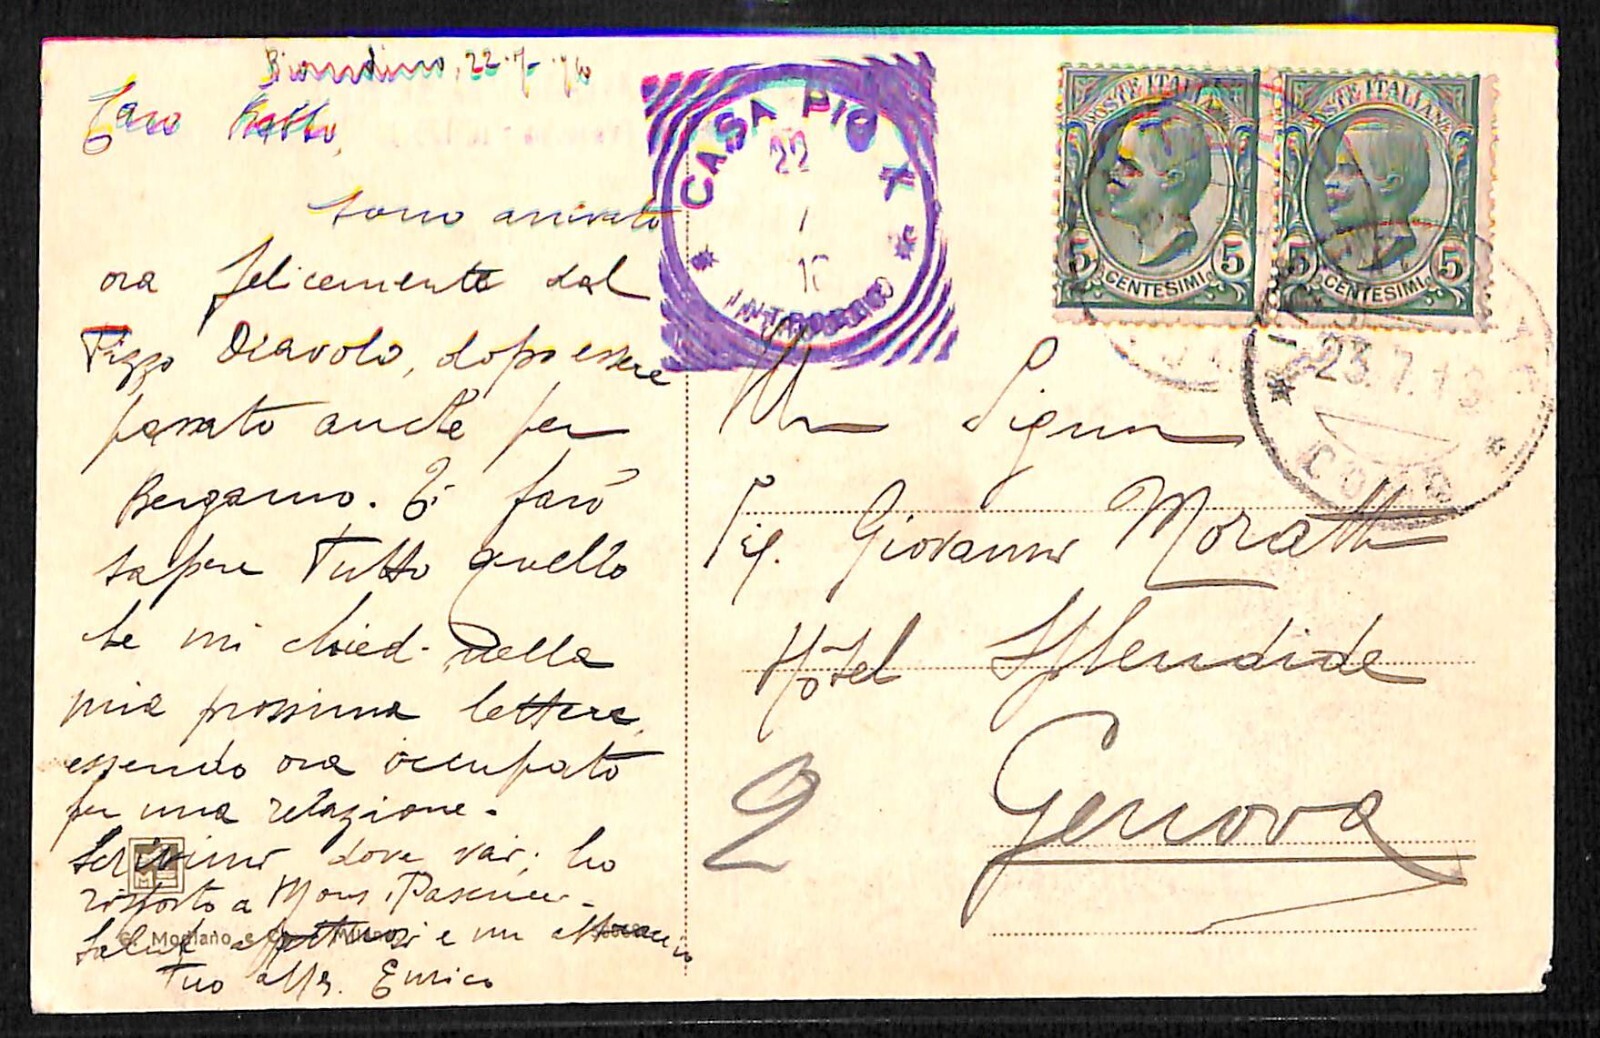 Biandino, 22.7.
Caro Babbo,
sono arrivato
ora felicemente dal
Pizzo Diavolo, dopo essere
passato anche per
Bergamo. Ti farò
sapere Tutto quello
che mi chied. nella
mia prossima lettera,
essendo ora occupato
per una relazione.
Scrivimi dove vai; ho
risposto a Mons.
Saluti affettuosi e un abbraccio
Tuo aff. Enrico
CASA PIO X
22
INTROBIO
POSTE ITALIANE
5 CENTESIMI 5
POSTE ITALIANE
5 CENTESIMI 5
23.7.
COMO
Signor
Sig. Giovanni Moratti
Hôtel Splendide
Genova
2